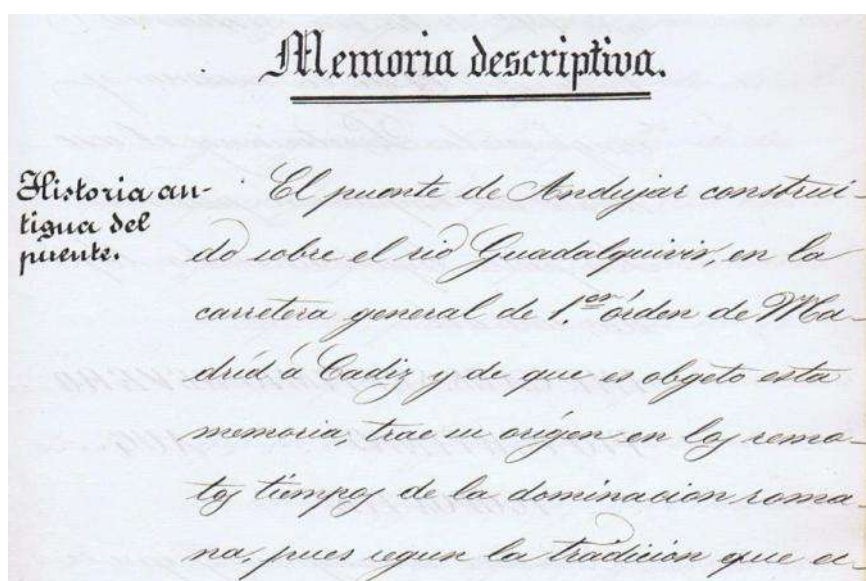 Memoria descriptiva.
Historia an-
tigua del
puente.
El puente de Andujar construi-
do sobre el rio Guadalquivir, en la
carretera general de 1.er órden de Ma-
drid á Cadiz y de que es obgeto esta
memoria, trae su orígen en los remo-
tos tiempos de la dominacion roma-
na, pues segun la tradicion que